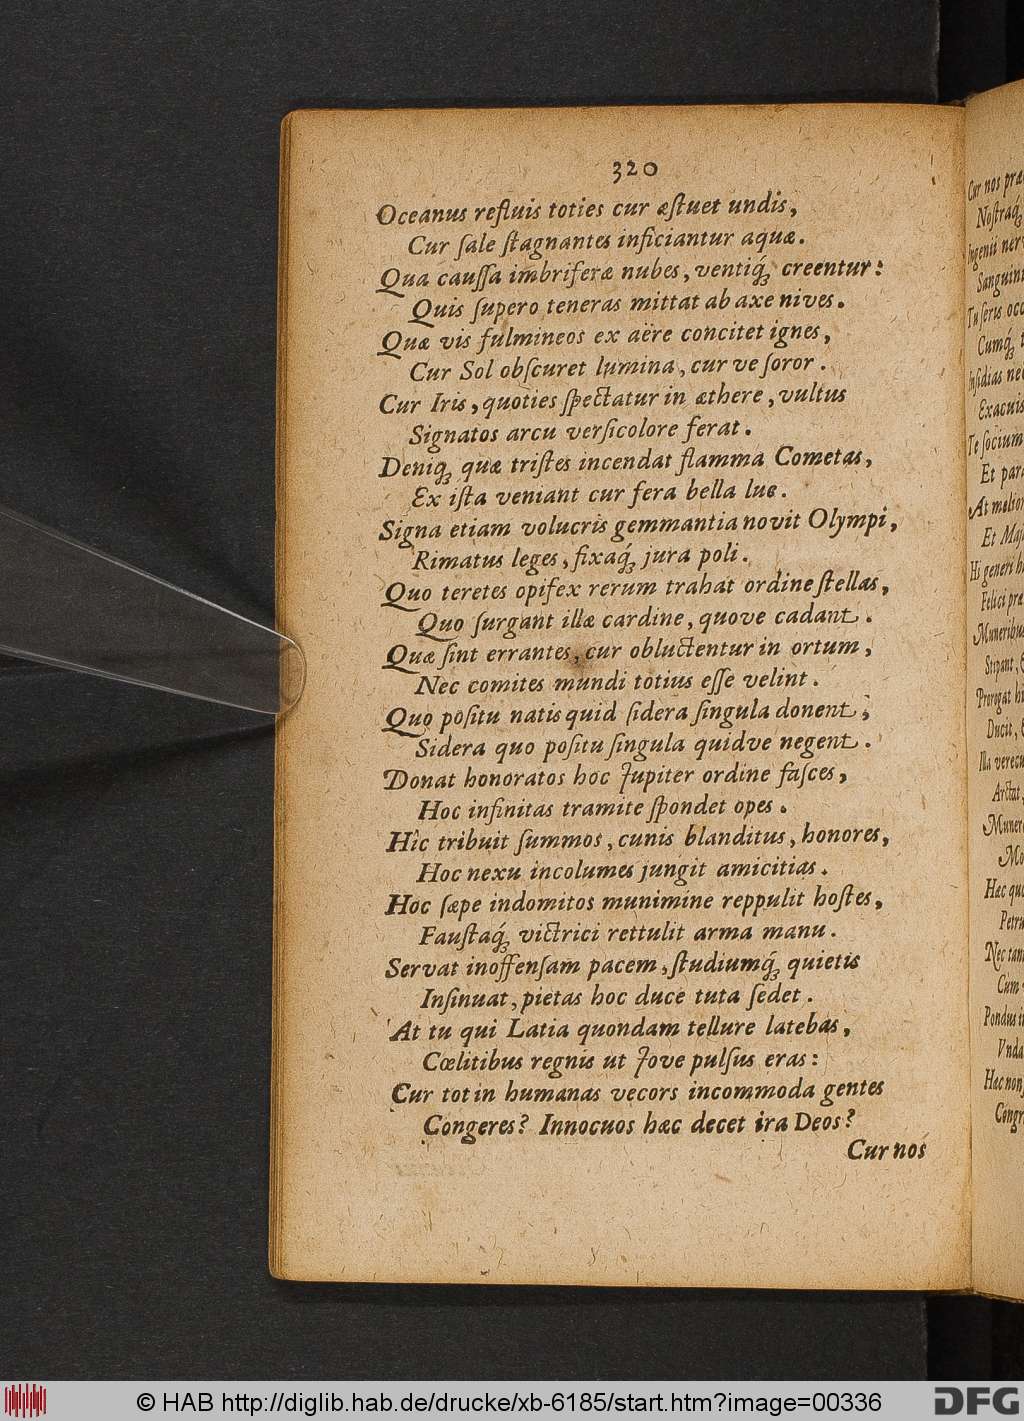 320
Oceanus refluis toties cur æſtuet undis,
Cur ſale ſtagnantes inficiantur aquæ.
Qua cauſſa imbriferæ nubes, ventiq́; creentur:
Quis ſupero teneras mittat ab axe nives.
Quæ vis fulmineos ex aëre concitet ignes,
Cur Sol obſcuret lumina, cur ve ſoror.
Cur Iris, quoties ſpectatur in æthere, vultus
Signatos arcu verſicolore ferat.
Deniq; quæ triſtes incendat flamma Cometas,
Ex iſta veniant cur fera bella lue.
Signa etiam volucris gemmantia novit Olympi,
Rimatus leges, fixaq́; jura poli.
Quo teretes opifex rerum trahat ordine ſtellas,
Quo ſurgant illæ cardine, quove cadant.
Quæ ſint errantes, cur obluctentur in ortum,
Nec comites mundi totius eſſe velint.
Quo poſitu natis quid ſidera ſingula donent;
Sidera quo poſitu ſingula quidve negent.
Donat honoratos hoc Jupiter ordine faſces,
Hoc infinitas tramite ſpondet opes.
Hîc tribuit ſummos, cunis blanditus, honores,
Hoc nexu incolumes jungit amicitias.
Hoc ſæpe indomitos munimine reppulit hoſtes,
Fauſtaq́; victrici rettulit arma manu.
Servat inoffenſam pacem, ſtudiumq́; quietis
Inſinuat, pietas hoc duce tuta ſedet.
At tu qui Latia quondam tellure latebas,
Cœlitibus regnis ut Jove pulſus eras:
Cur tot in humanas vecors incommoda gentes
Congeres? Innocuos hæc decet ira Deos?
Cur nos
Cur nos
Noſtraq́;
Ingenii
Tu ſeris
Cumq́;
Inſidias
Te ſocium
Et
At
Et
Hi generi
Felici
Stipant,
Prorogat
Ducit,
Illa
Arctat,
Hæc
Nec
Cum
Pondus
Hæc non
© HAB http://diglib.hab.de/drucke/xb-6185/start.htm?image=00336
DFG